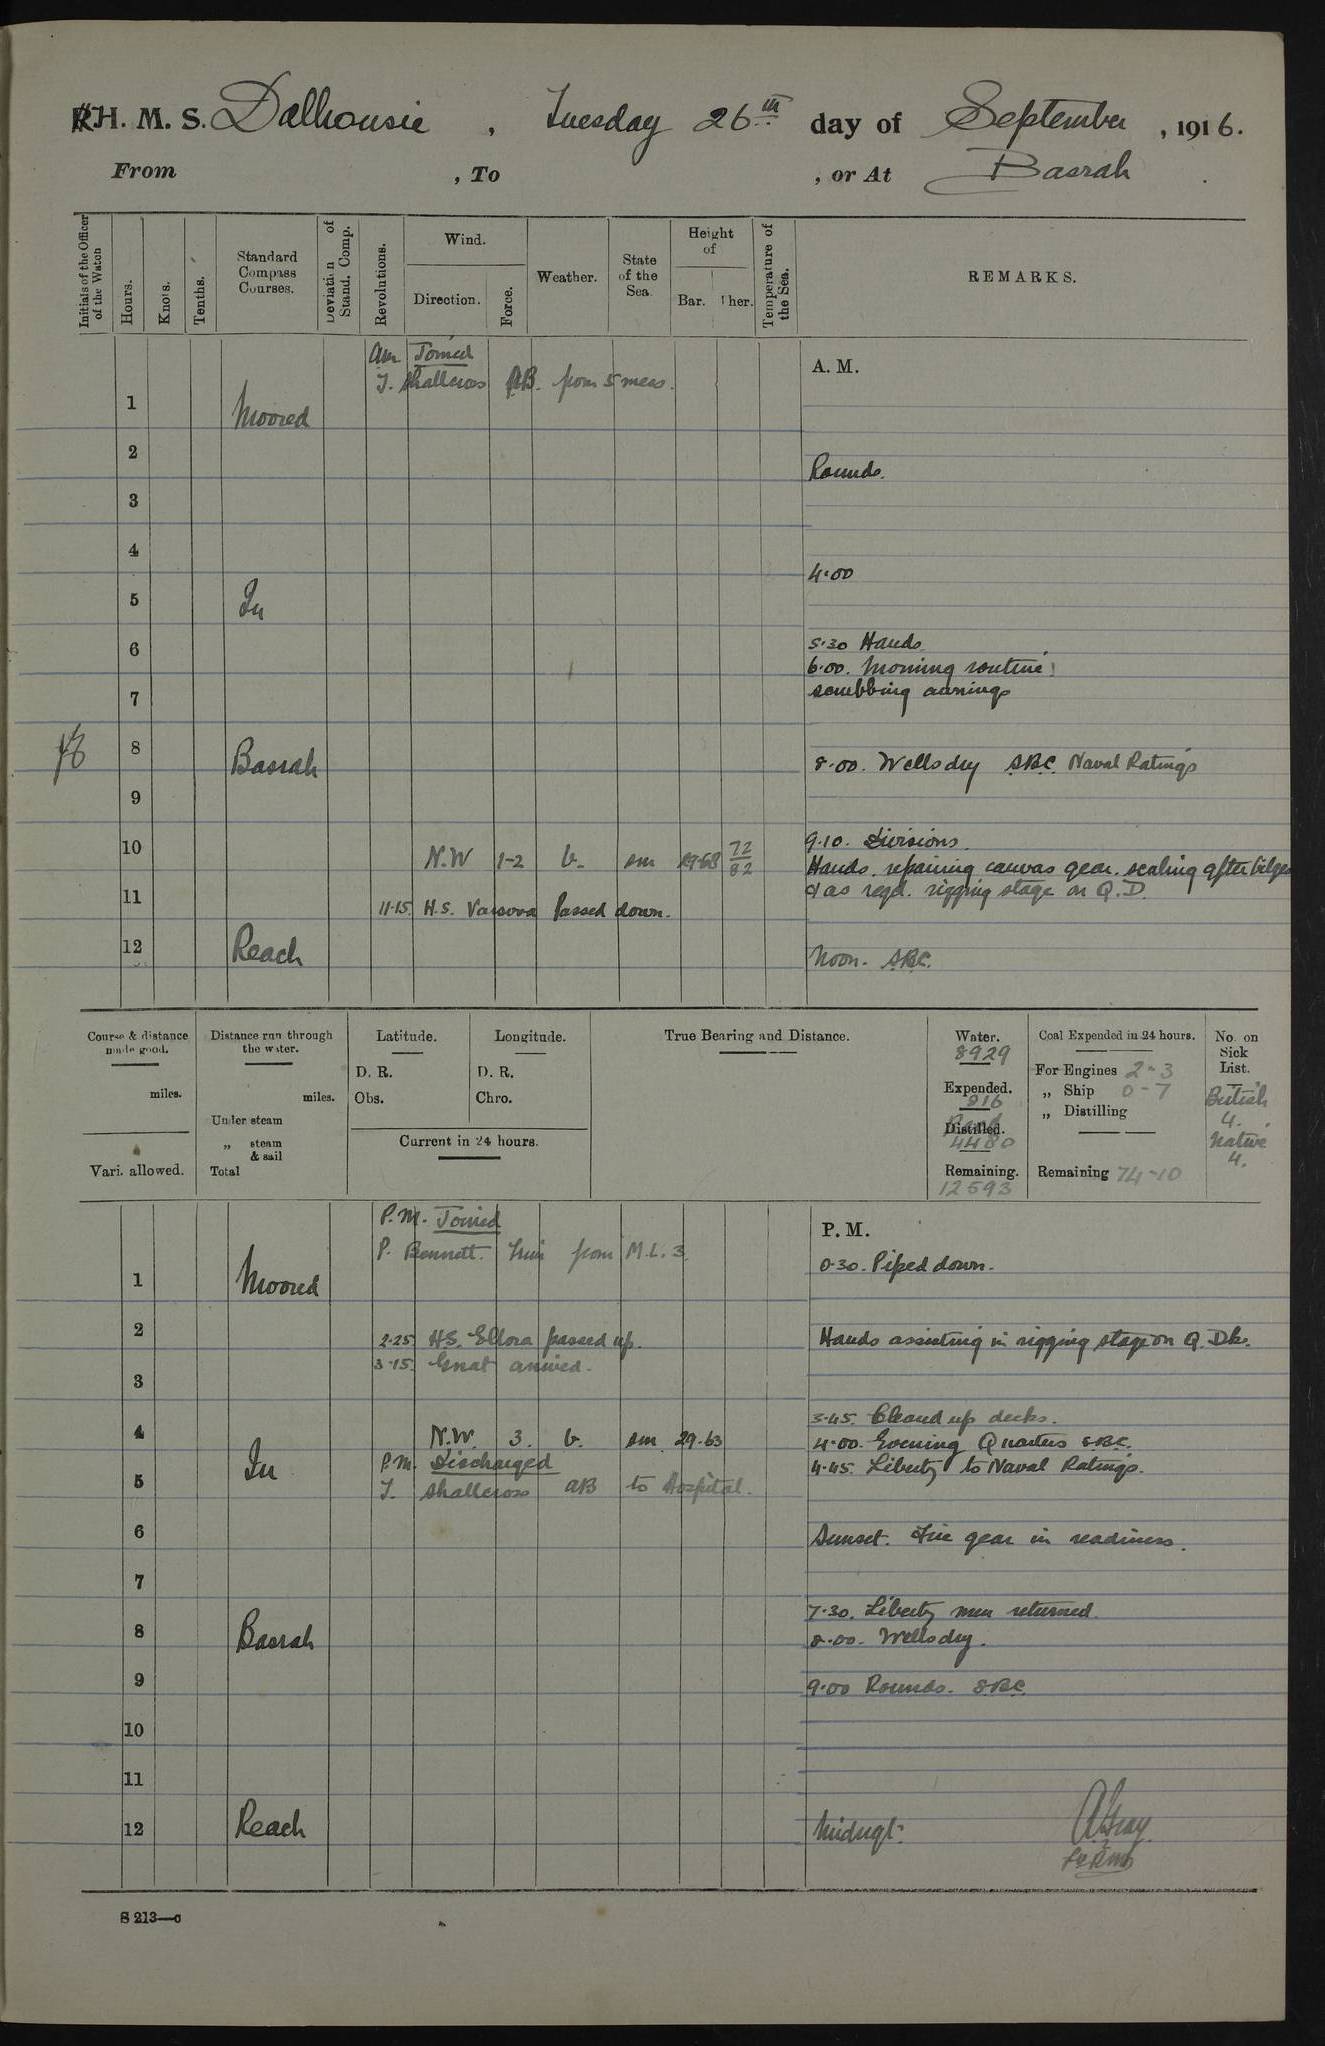 H. M. S. Dalhousie, Tuesday 26th day of September, 1916.
From , To , or At Basrah.
Initials of the Officer of the Watch
Hours.
Knots.
Tenths.
Standard Compass Courses.
Deviation of Stand. Comp.
Revolutions.
Wind.
Direction.
Force.
Weather.
State of the Sea.
Height of
Bar.
Ther.
Temperature of the Sea.
REMARKS.
Am Joined
J. Shallcross AB. from 5 mess.
A. M.
1 Moored
2
Rounds.
3
4
4.00
5 In
5.30 Hands
6
6.00. Morning routine
scrubbing awnings
7
8 Basrah 8.00. Wells dry SBC. Naval Ratings
9
9.10. Divisions.
10 N.W 1-2 b. sm 29.68 72/82
Hands. repairing canvas gear. scaling after bilges
& as reqd. rigging stage on Q.D.
11
11.15. H.S. Varsova passed down.
12 Reach Noon. SBC.
Course & distance made good.
miles.
Vari. allowed.
Distance run through the water.
miles.
Under steam
„ steam & sail
Total
Latitude.
D. R.
Obs.
Longitude.
D. R.
Chro.
Current in 24 hours.
True Bearing and Distance.
Water.
8929
Expended.
816
Distilled.
4480
Remaining.
12593
Coal Expended in 24 hours.
For Engines 2-3
„ Ship 0-7
„ Distilling
Remaining 74-10
No. on Sick List.
British
4.
Native
4.
P.M. Joined
P. Bennett. from M.L. 3.
P. M.
0.30. Piped down.
1 Moored
2
2.25. H.S. Ellora passed up. Hands assisting in rigging stage on Q. Dk.
3.15. Gnat arrived.
3
3.45. Cleand up decks.
4 N.W. 3. b. sm 29.63 4.00. Evening Quarters SBC.
P.M. Discharged 4.45. Liberty to Naval Ratings.
5 In
J. Shallcross AB to Hospital.
6 Sunset. Fire gear in readiness.
7
7.30. Liberty men returned.
8 Basrah 8.00. Wells dry.
9 9.00 Rounds. SBC
10
11
12 Reach Midngt. A Gray.
S 213—c